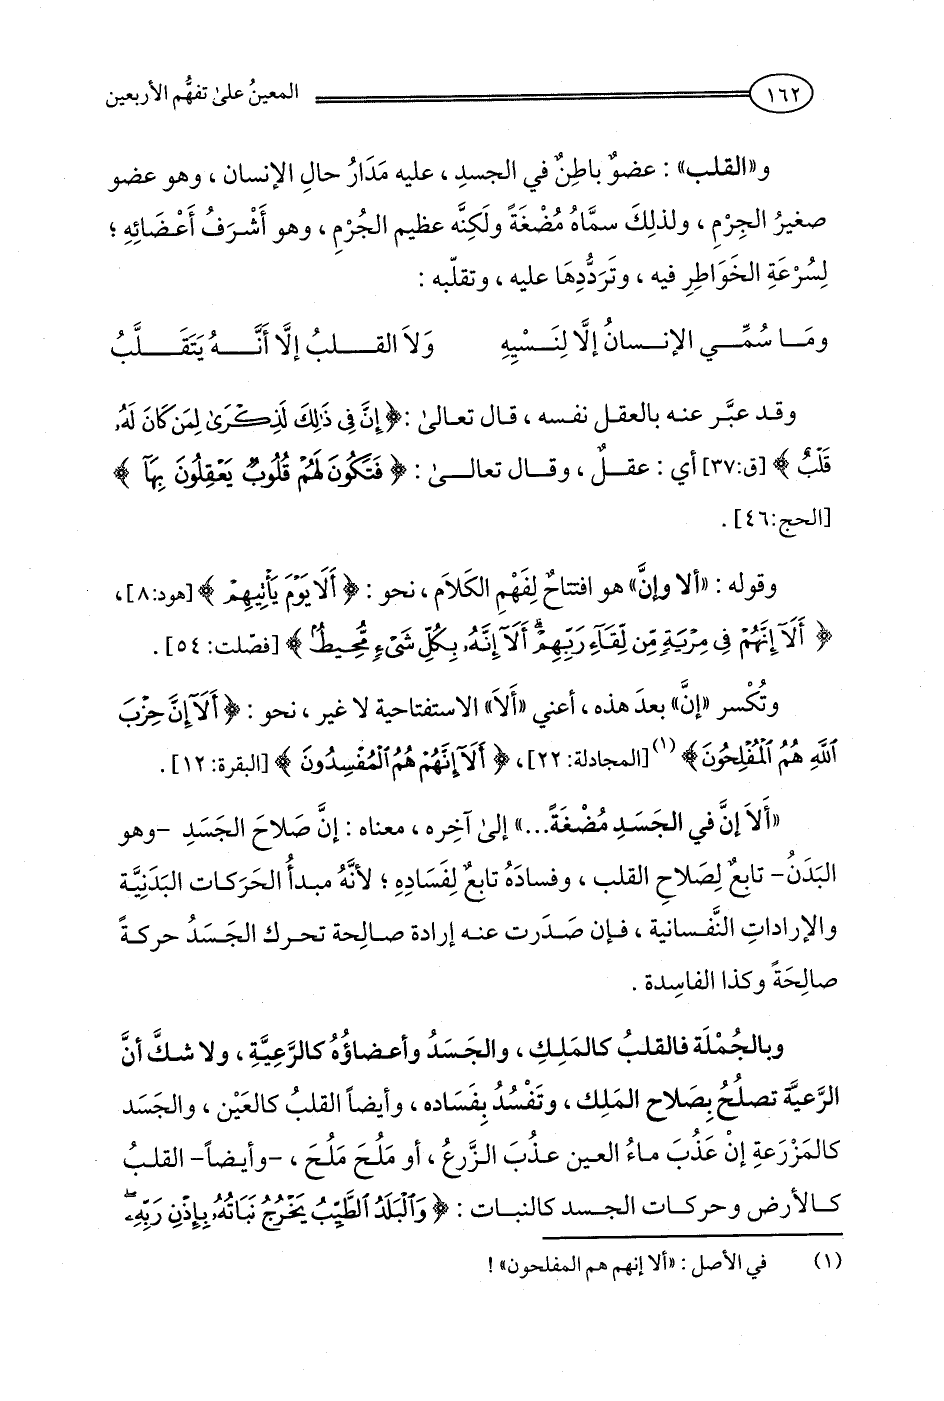 ١٦٢ المعينُ على تفهُّم الأربعين
و«القلب» : عضوٌ باطِنٌ في الجسدِ ، عليه مَدَارُ حالِ الإنسان ، وهو عضو
صغيرُ الجِرْمِ ، ولذلِكَ سمَّاهُ مُضْغَةً ولَكِنَّه عظيم الجُرْمِ ، وهو أَشْرَفُ أَعْضَائِهِ ؛
لِسُرْعَةِ الخَوَاطِرِ فيه ، وتَرَدُّدِهَا عليه ، وتقلّبه :
ومَا سُمِّي الإنسانُ إلَّا لِنَسْيِهِ وَلاَ القلبُ إلَّا أنَّهُ يَتَقَلَّبُ
وقد عبَّر عنه بالعقل نفسه ، قال تعالى : ﴿ إِنَّ فِي ذَٰلِكَ لَذِكْرَىٰ لِمَن كَانَ لَهُۥ
قَلْبٌ ﴾ [ق:٣٧] أي : عقلٌ ، وقال تعالى : ﴿ فَتَكُونَ لَهُمْ قُلُوبٌ يَعْقِلُونَ بِهَآ ﴾
[الحج:٤٦] .
وقوله : «ألا وإنَّ» هو افتتاحٌ لِفَهْمِ الكَلاَم ، نحو : ﴿ أَلَا يَوْمَ يَأْتِيهِمْ ﴾ [هود:٨]،
﴿ أَلَآ إِنَّهُمْ فِي مِرْيَةٍ مِّن لِّقَآءِ رَبِّهِمْ ۗ أَلَآ إِنَّهُۥ بِكُلِّ شَيْءٍ مُّحِيطٌ ﴾ [فصّلت: ٥٤] .
وتُكْسر «إنَّ» بعدَ هذه ، أعني «أَلاَ» الاستفتاحية لا غير ، نحو : ﴿ أَلَآ إِنَّ حِزْبَ
ٱللَّهِ هُمُ ٱلْمُفْلِحُونَ ﴾(١) [المجادلة: ٢٢]، ﴿ أَلَآ إِنَّهُمْ هُمُ ٱلْمُفْسِدُونَ ﴾ [البقرة: ١٢] .
«أَلاَ إنَّ في الجَسَدِ مُضْغَةً...» إلى آخِره ، معناه : إنَّ صَلاَحَ الجَسَدِ -وهو
البَدَنُ- تابعٌ لِصَلاحِ القلب ، وفسادَهُ تابعٌ لِفَسَادِهِ ؛ لأنَّهُ مبدأُ الحَرَكات البَدَنِيَّة
والإراداتِ النَّفسانية ، فإن صَدَرت عنه إرادة صالحة تحرك الجَسَدُ حركةً
صالِحَةً وكذا الفاسِدة .
وبالجُمْلَة فالقلبُ كالمَلِكِ ، والجَسَدُ وأعضاؤُهُ كالرَّعِيَّةِ ، ولا شكَّ أنَّ
الرَّعيَّة تصلُحُ بِصَلاح المَلِك ، وتَفْسُدُ بِفَساده ، وأيضاً القلبُ كالعَيْن ، والجَسَد
كالمَزْرَعةِ إنْ عَذُبَ ماءُ العين عذُبَ الزَّرعُ ، أو مَلُحَ مَلُحَ ، -وأيضاً- القلبُ
كالأرض وحركات الجسد كالنبات : ﴿ وَٱلْبَلَدُ ٱلطَّيِّبُ يَخْرُجُ نَبَاتُهُۥ بِإِذْنِ رَبِّهِۦ ۖ
(١) في الأصل : «ألا إنهم هم المفلحون» !